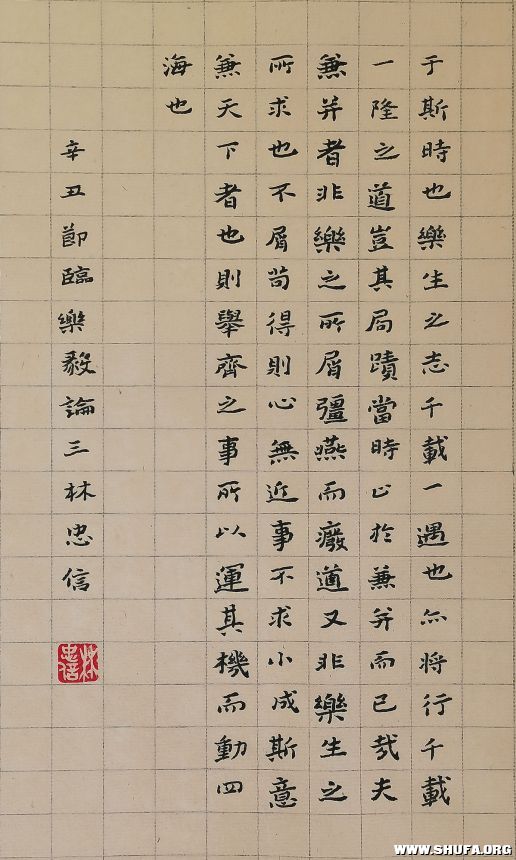 于斯時也樂生之志千載一遇也亦將行千載
一隆之道豈其局蹟當時止於兼并而已哉夫
兼并者非樂之所屑彊燕而癈道又非樂生之
所求也不屑苟得則心無近事不求小成斯意
兼天下者也則舉齊之事所以運其機而動四
海也
辛丑節臨樂毅論三林忠信
林忠信
WWW.SHUFA.ORG